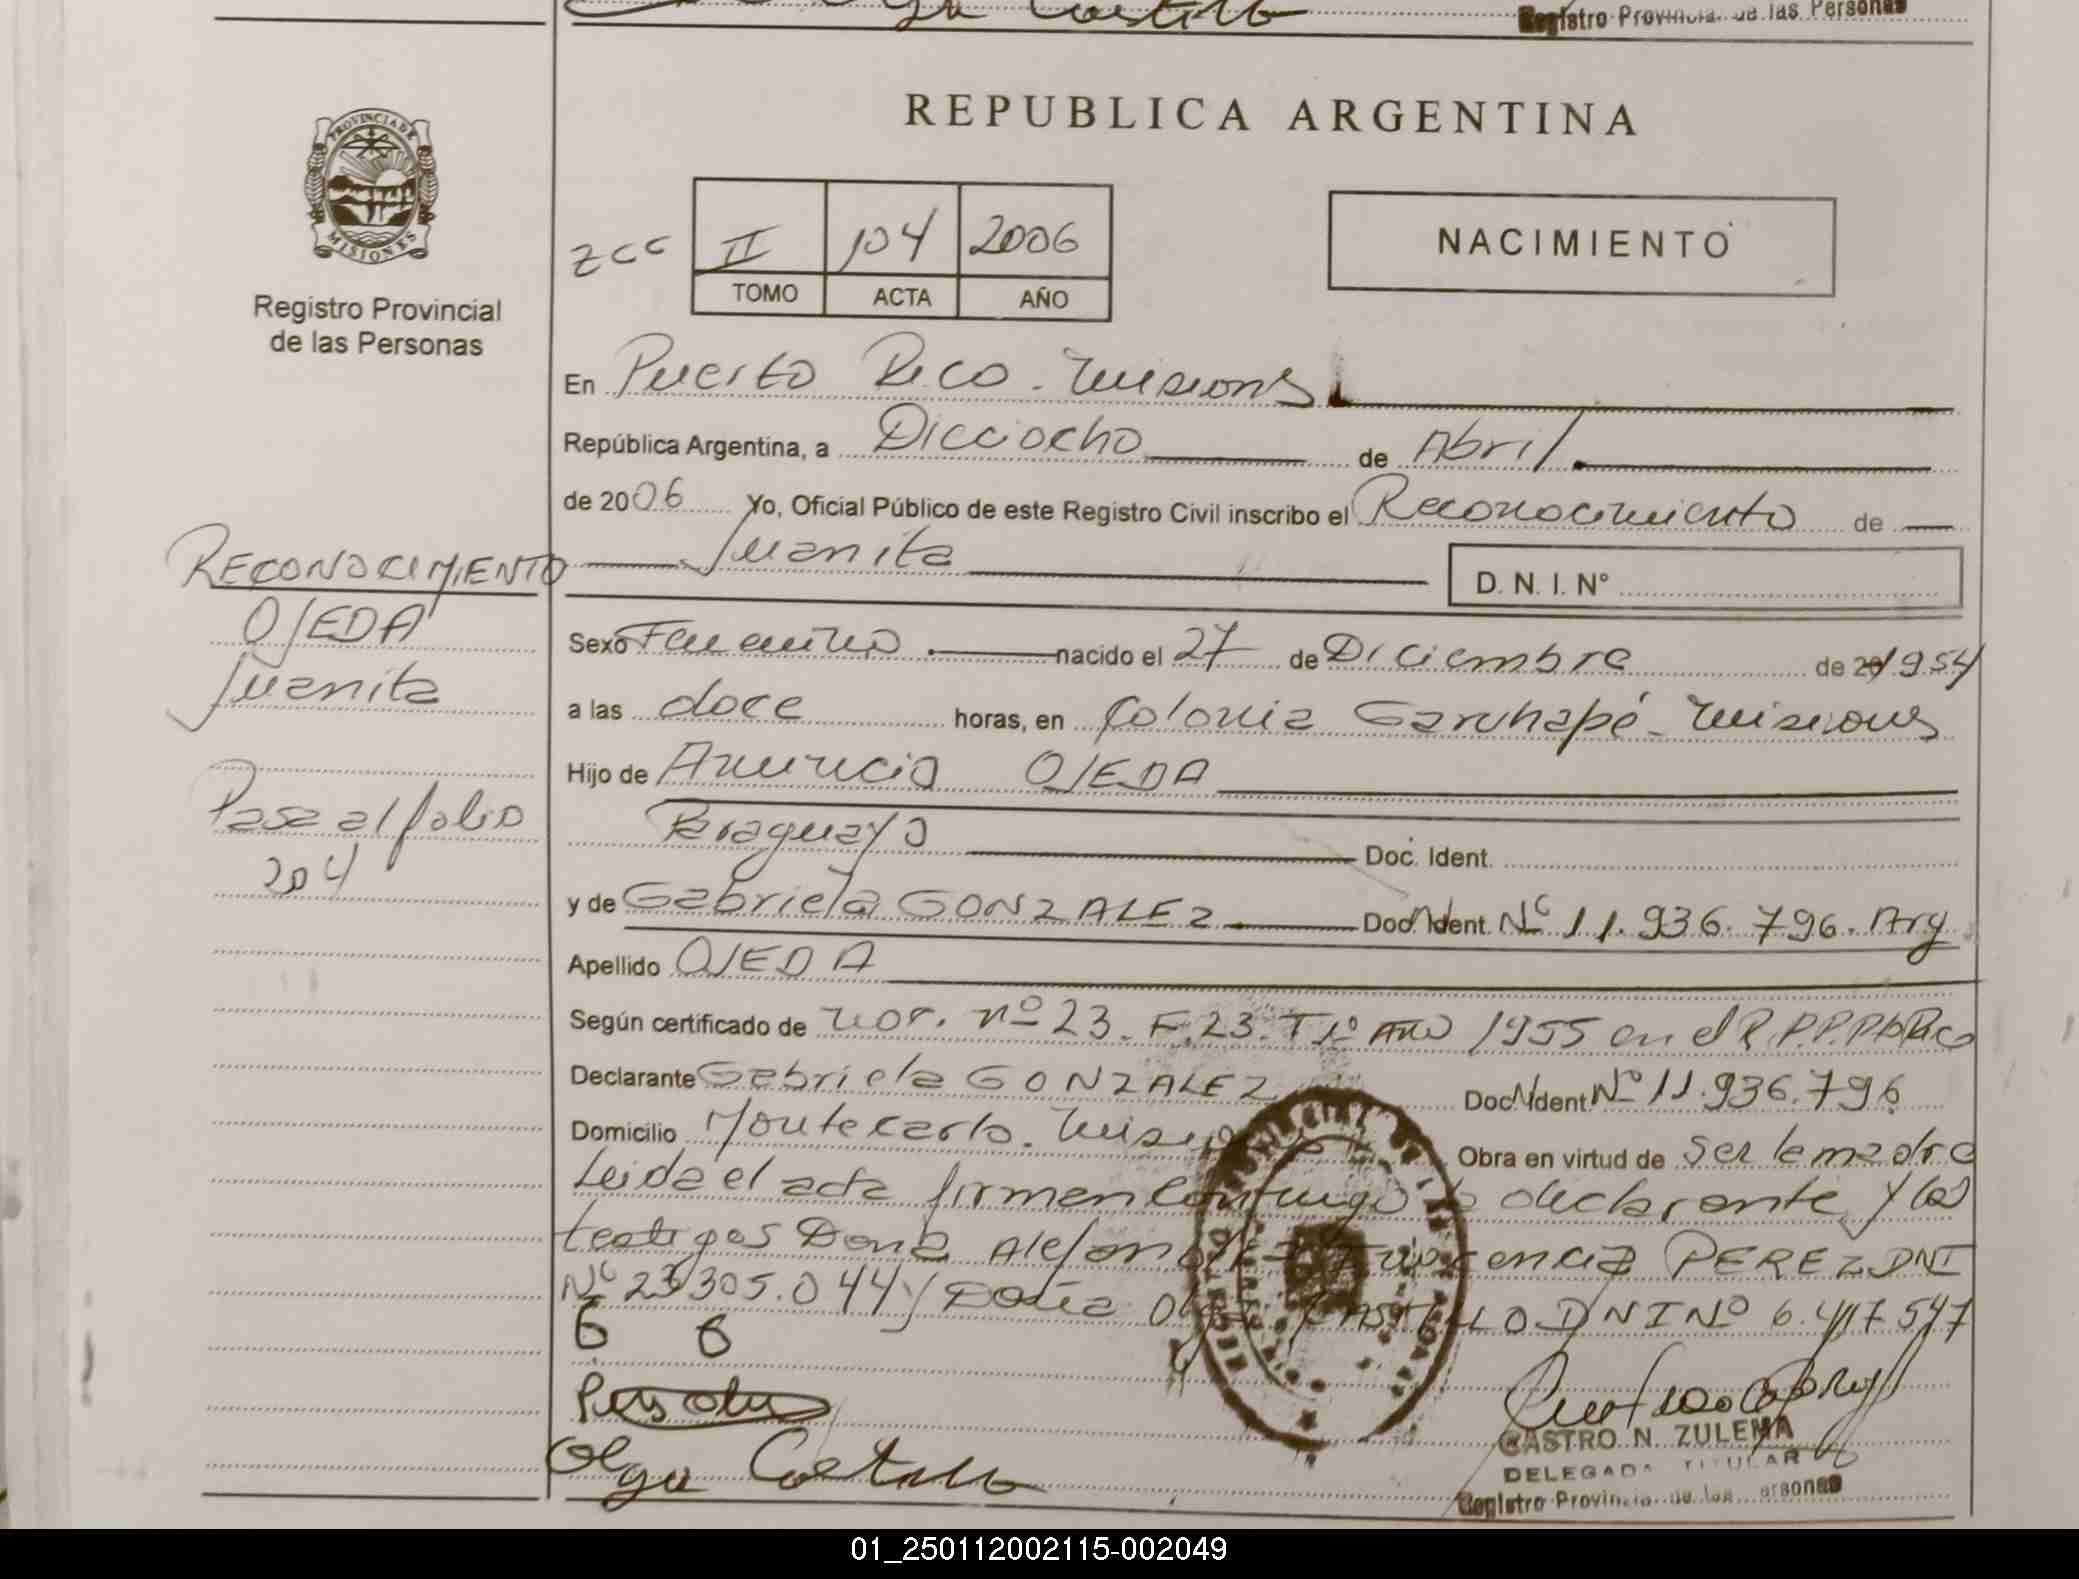 Olga Castillo
Registro Provincial de las Personas
REPUBLICA ARGENTINA
PROVINCIA DE
MISIONES
Registro Provincial
de las Personas
zcc
II
104
2006
TOMO
ACTA
AÑO
NACIMIENTO
En Puerto Rico. Misiones
República Argentina, a Dieciocho de Abril
de 2006 Yo, Oficial Público de este Registro Civil inscribo el Reconocimiento de
Juanita
D. N. I. Nº
RECONOCIMIENTO
OJEDA
Juanita
Pasa al folio
204
Sexo Femenino nacido el 27 de Diciembre de 20 1954
a las doce horas, en Colonia Garuhapé - Misiones
Hijo de Anuncio OJEDA
Paraguayo Doc. Ident.
y de Gabriela GONZALEZ Doc. Ident. Nº 11.936.796. Arg
Apellido OJEDA
Según certificado de nº 23. F. 23. T 1º Año 1955 en el R.P.P. Pto Rico
Declarante Gabriela GONZALEZ Doc. Ident. Nº 11.936.796
Domicilio Montecarlo. Misiones Obra en virtud de ser la madre
Leida el acta firman conmigo la declarante y los
testigos Doña PEREZ DNI
Nº 23.305.044 y Doña Olga CASTILLO DNI Nº 6.417.547
Olga Castillo
CASTRO N. ZULEMA
DELEGADA TITULAR
Registro Provincial de las Personas
01_250112002115-002049